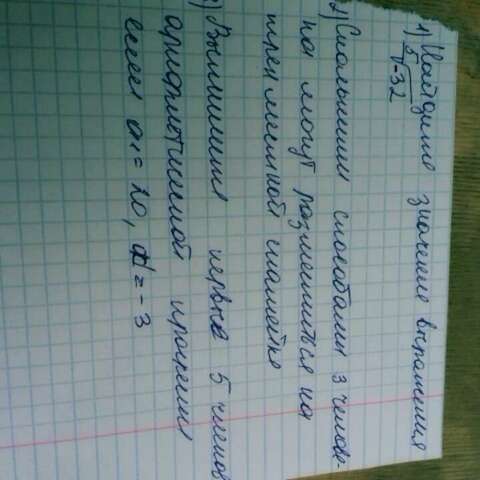 1) Найдите значение выражения
⁵√-32
2) Сколькими способами 3 челове-
ка могут разместиться на
трех местной скамейке
3) Выпишите первые 5 членов
арифметической прогрессии
если a₁ = 20, d = -3